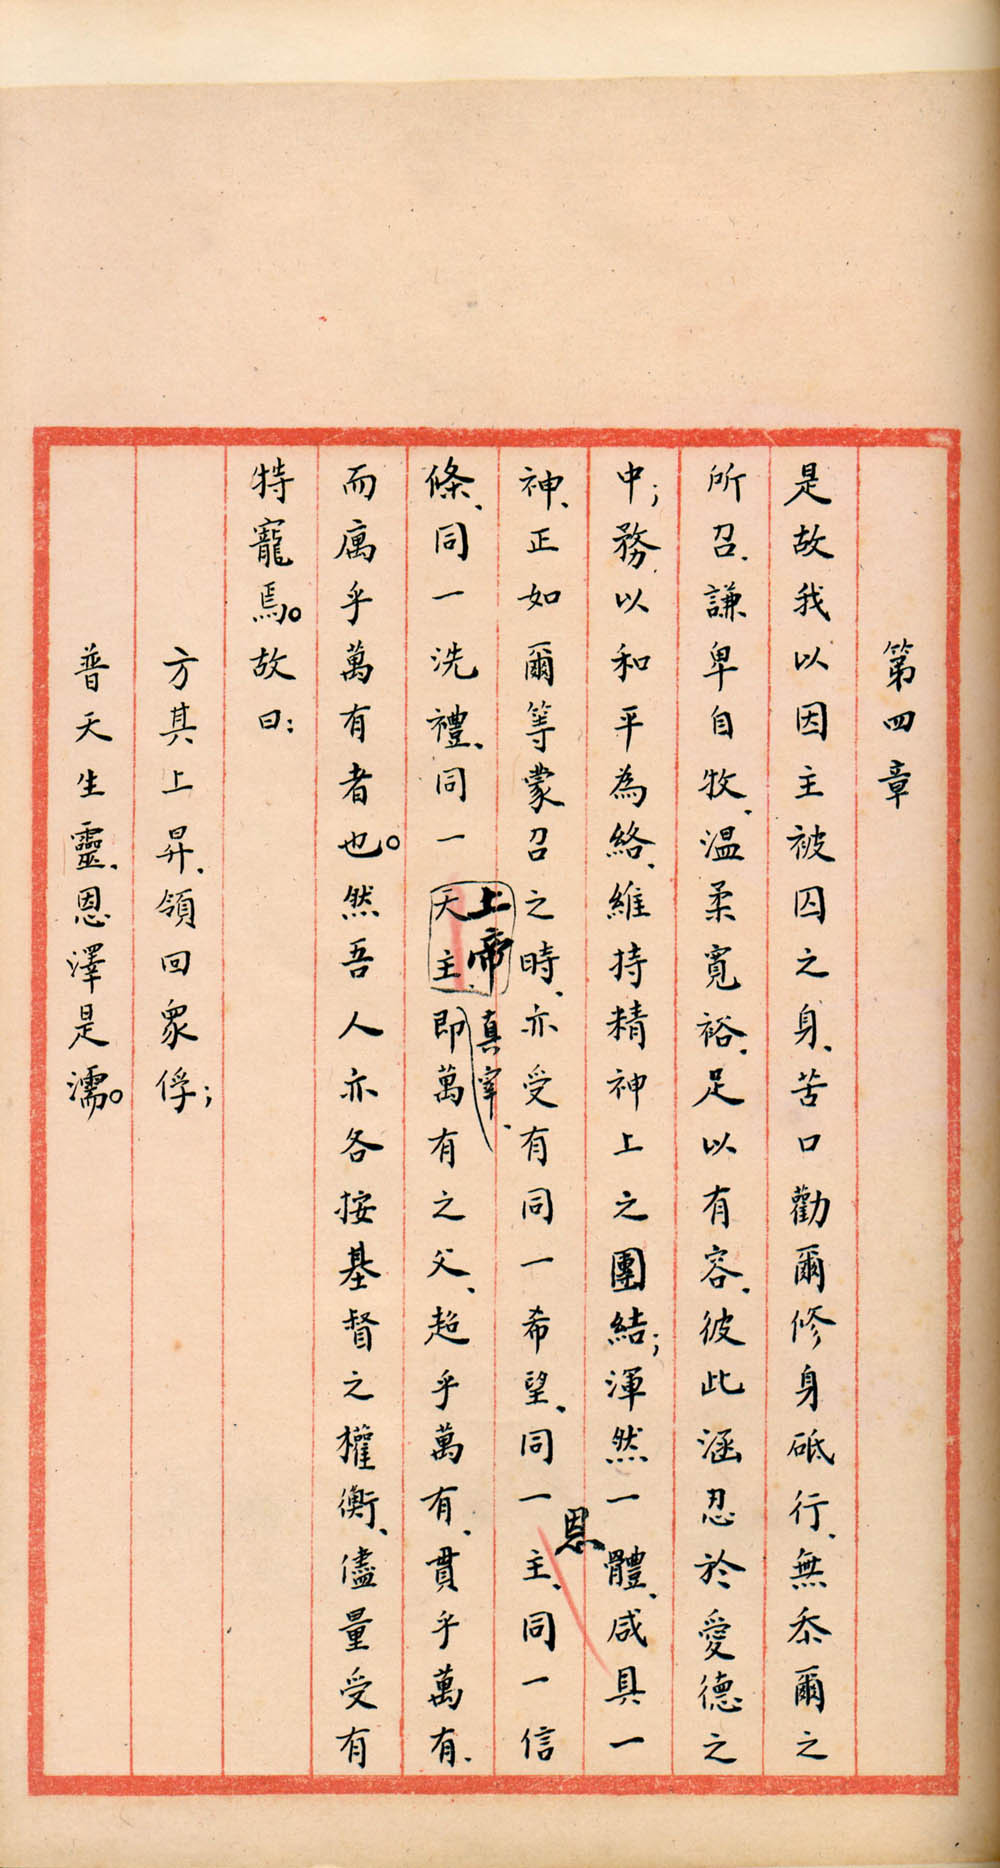 第四章
是故我以因主被囚之身、苦口勸爾修身砥行、無忝爾之
所召、謙卑自牧、温柔寬裕、足以有容、彼此涵忍於愛德之
中；務以和平為絡、維持精神上之團結；渾然一體、咸具一
恩
神、正如爾等蒙召之時、亦受有同一希望、同一主、同一信
上帝真宰、
條、同一洗禮、同一天主、即萬有之父、超乎萬有、貫乎萬有、
而寓乎萬有者也。然吾人亦各按基督之權衡、儘量受有
特寵焉。故曰：
方其上昇、領回眾俘；
普天生靈、恩澤是濡。